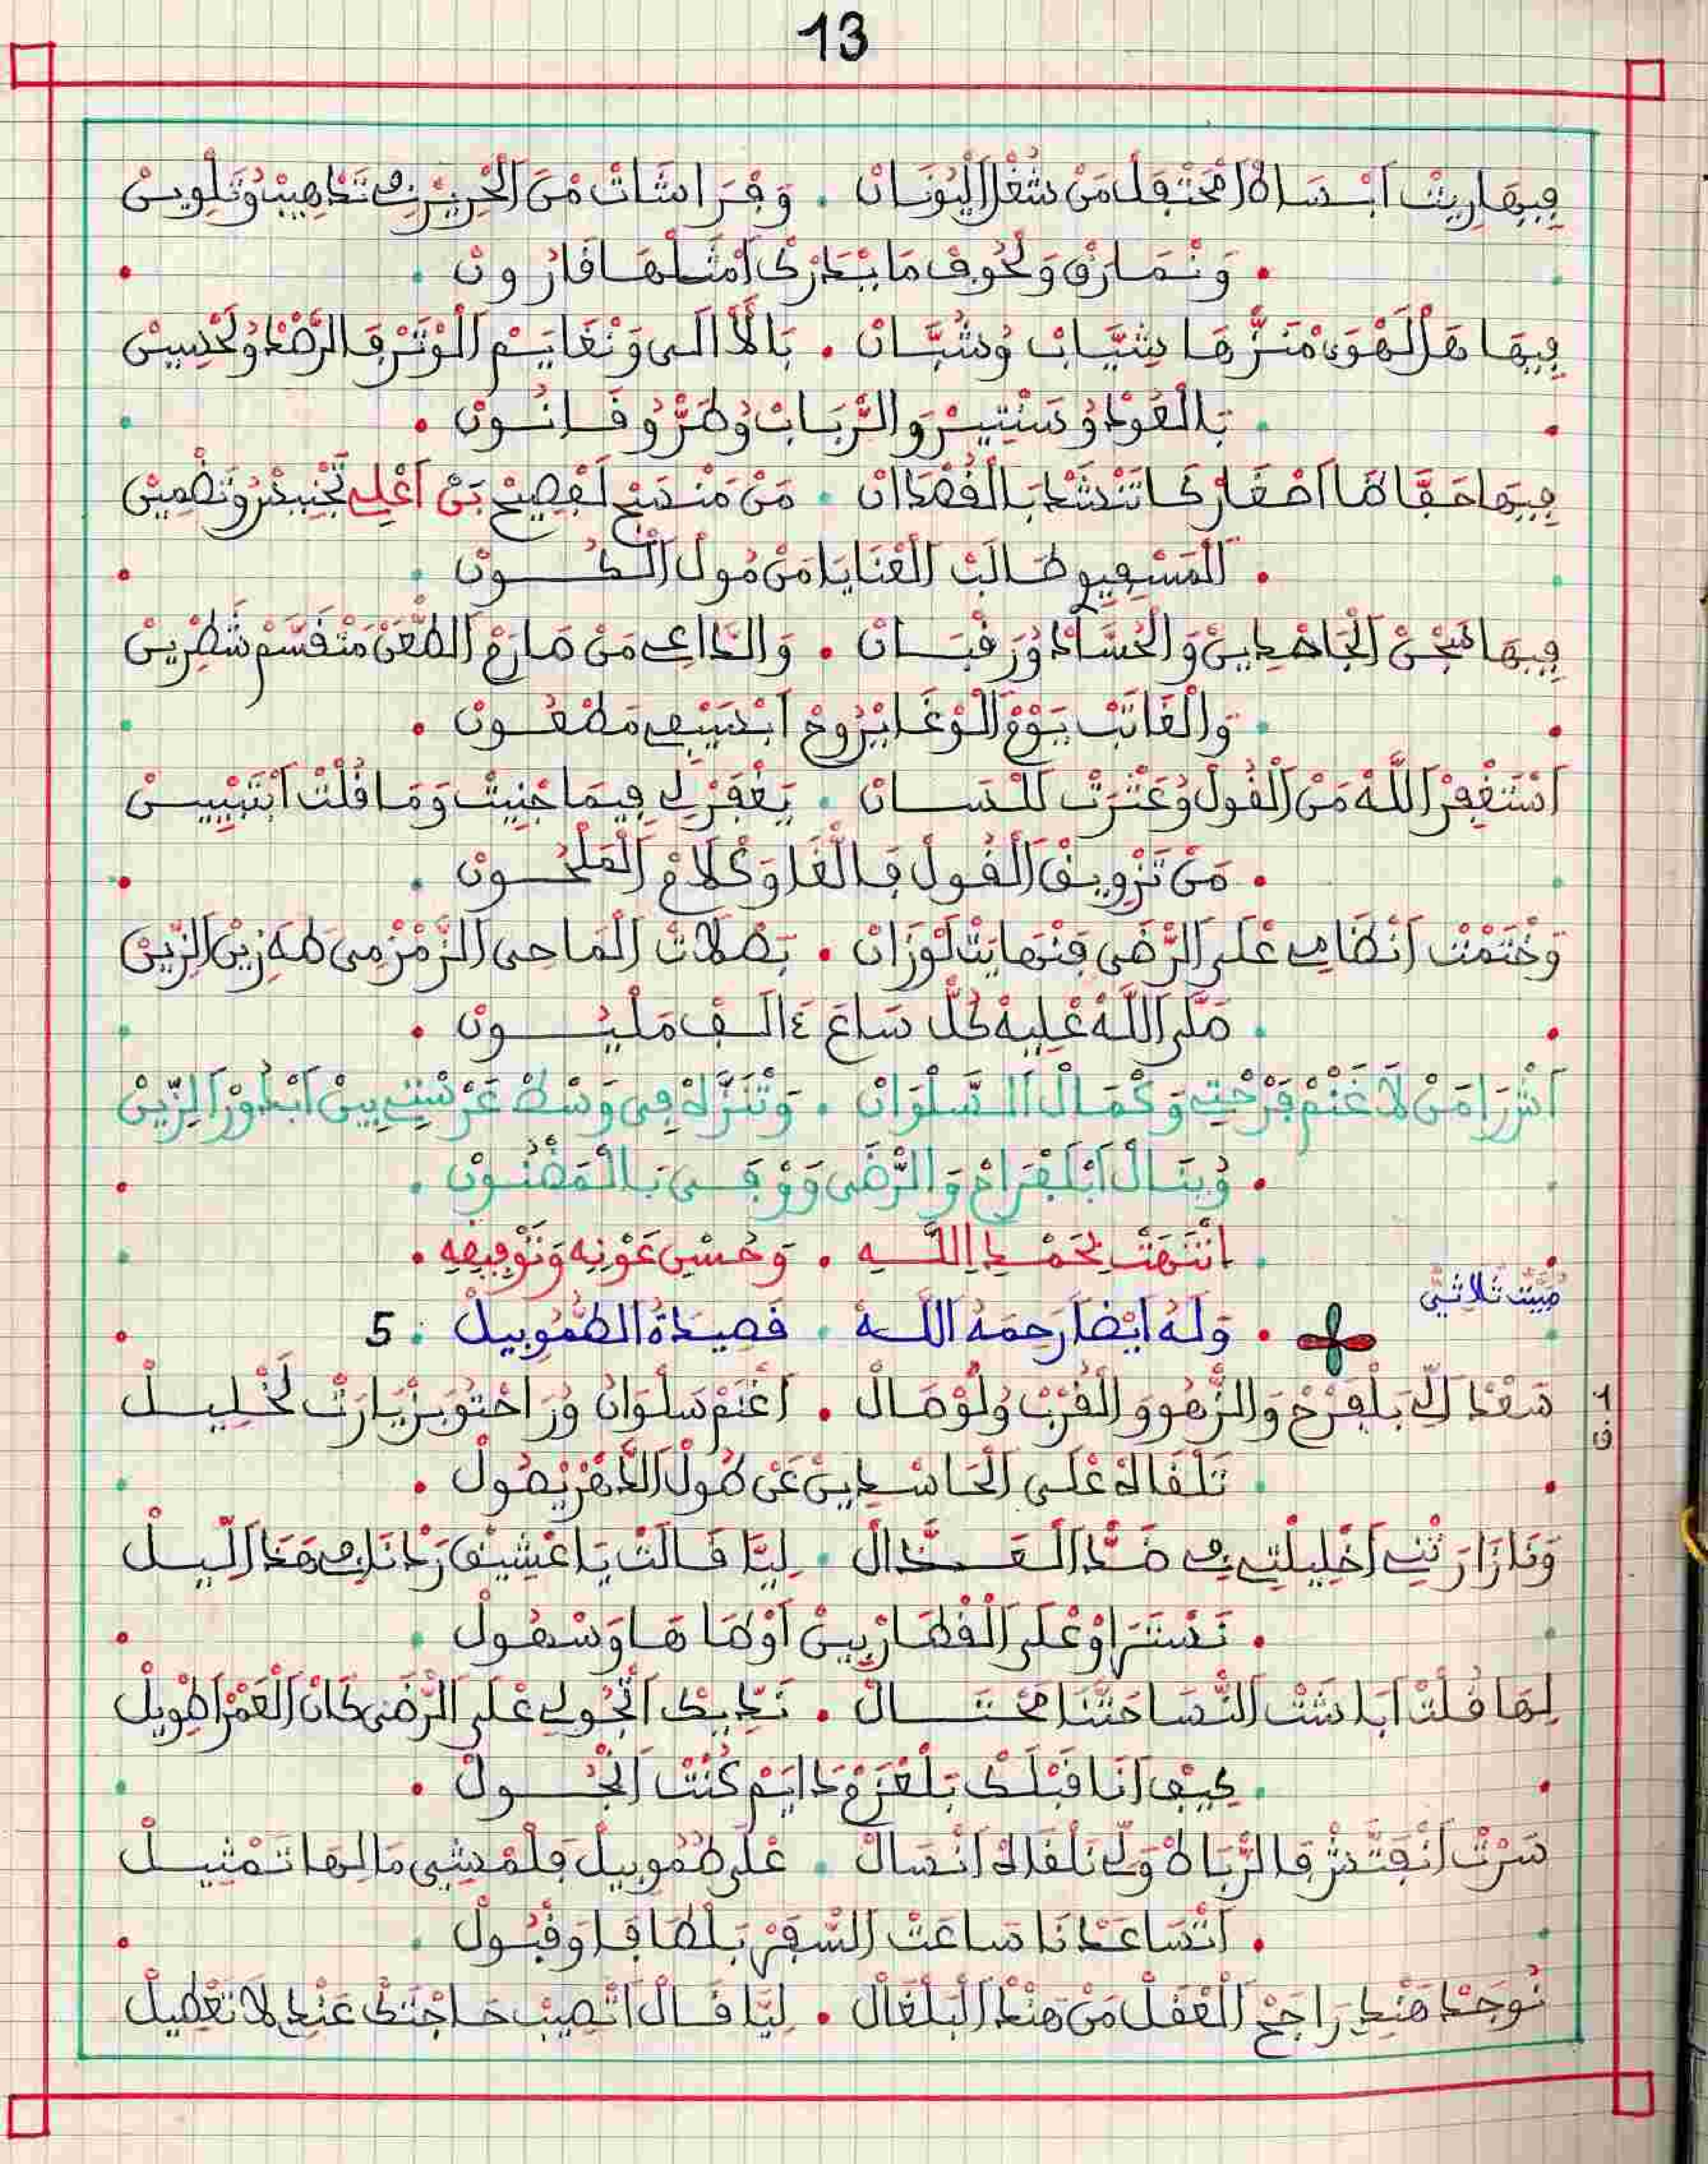 13
فِيهَا رِيتْ اَبْسَاطْ اَمْحَتْفَلْ مَنْ شُغْلْ اَلْيُونَانْ . وَفْرَاشَاتْ مَنْ اَلْحْرِيرْ فِي تَذْهِيبْ وُتَلْوِينْ
. وَنْمَارَقْ وَلْحُوفْ مَا يَدْرَكْ اَمْثَلْهَا قَارُونْ .
فِيهَا هَلْ اَلْهْوَى مْنَزّْهَا شِيَّابْ وُشُبَّانْ . بَالْأَالَى وَنْغَايَمْ اَلْوْتَرْ فَالرَّصْدْ وُلَحْسِينْ
. بَالْعُودْ وُسَنْتِيرْ وَالرّْبَابْ وُطَرّْ وُقَانُونْ .
فِيهَا حَقَّاقَا اَصْغَارْ كَاتَنْشَدْ بَالْقُصْدَانْ . مَنْ مَنْسَجْ لَفْصِيحْ بَنْ اَعْلِي تَجْنِيدْ وُتَضْمِينْ
. اَلْمَسْفِيوِ طَالَبْ اَلْعْنَايَا مَنْ مُولْ اَلْكُونْ
فِيهَا سَجْنْ اَلْجَاحْدِينْ وَالْحُسَّادْ وُرَقْبَانْ . وَالدَّاعِي مَنْ صَارَمْ اَلطّْعَنْ مَتْقَسَّمْ شَطْرِينْ
. وَالْغَاتَبْ يَوْمْ اَلْوْغَا يْرُوحْ اَبْسَيْفِي مَطْعُونْ .
اَسْتَغْفِرْ اَللَّهْ مَنْ اَلْقُولْ وُعَثْرَتْ لَلْسَانْ . يَغْفَرْ لِي فِيمَا جْنِيتْ وَمَا قُلْتْ اَبْتَبْيِينْ
. مَنْ تَزْوِيقْ اَلْقُولْ فَاللّْغَا وَكْلَامْ اَلْمَلْحُونْ .
وَخْتَمْتْ اَنْظَامِي عْلَى اَلرّْضَى فَنْهَايَتْ لَوْزَانْ . بَصْلَاتْ اَلْمَاحِى اَلزَّمْزْمِى طَهَ زِينْ اَلزِّينْ
. صَلَّى اَللَّهْ عْلِيهْ كُلّْ سَاعَ ٤ اَلَفْ مَلْيُونْ .
اَشْرَا مَنْ لَا غَنَمْ فَرْحْتِي وَكْمَالْ اَلسَّلْوَانْ . وَتْنَزَّهْ فِي وَسْطْ عَرْسْتِي بِينْ اَبْدُورْ اَلزِّينْ
. وُيَنَالْ اَبْلَفْرَاحْ وَالرّْضَى وَوْفَى بَالْمَضْنُونْ .
. اِنْتَهَتْ بِحَمْدِ اِللَّهِ . وَحُسْنِ عَوْنِهِ وَتَوْفِيقِهِ .
مْبَيَّت ثلاثيّ
. وَلَهُ أَيْضَا رَحِمَهُ اَللَّهْ . قَصِيدَةُ الطُّمُوبِيلْ . 5
سَعْدْ اَلِّي بَلْفَرْحْ وَالزّْهُو وَالْقُرْبْ وُلُوْصَالْ . اَغْنَمْ سَلْوَانْ وُرَاحْتُو بَزْيَارَتْ لَخْلِيلْ
1
ق
. تَلْقَاهْ عْلَى اَلْحَاسْدِينْ عَنْ طُولْ اَلدّْهَرْ يْصُولْ .
وَنَا زَارَتْنِي اَخْلِيلْتِي فِي ضَدّْ اَلْعَدَّالْ . لِيَّا قَالَتْ يَا عْشِيقْ رَدْنَا فِي هَدَ اَلِّيلْ
. نَسْتَرَاوْ عْلَى اَلْقْطَارْ بِينْ اَوْطَاهَا وَسْهُولْ .
لِهَا قُلْتْ اَبَاشَتْ اَلنّْسَا حَتْنَا مَحْتَالْ . نَدِّيكْ اَتْجُولِي عْلَى اَلرّْضَى كَانْ اَلْعْمَرْ اَطْوِيلْ
. كِيفْ اَنَا قَبْلَكْ بَلْعْزَمْ دَايَمْ كُنْتْ اَنْجُولْ .
سَرْتْ اَنْفَتَّشْ فَالرّْبَاطْ وَلِّي نَلْقَاهْ اَنْسَالْ . عْلَى طُمُوبِيلْ فَلْمْشِي مَا لِهَا تَمْثِيلْ
. اَتْسَاعَدْنَا سَاعَتْ اَلسّْفَرْ بَلْطَافَا وَقْبُولْ .
نُوجَدْ هَنْدِ رَاجَحْ اَلْعْقَلْ مَنْ هَنْدْ اَلْبَلْغَالْ . لِيَّا قَالْ اَتْصِيبْ حَاجْتَكْ عَنْدِ لَا تَعْطِيلْ